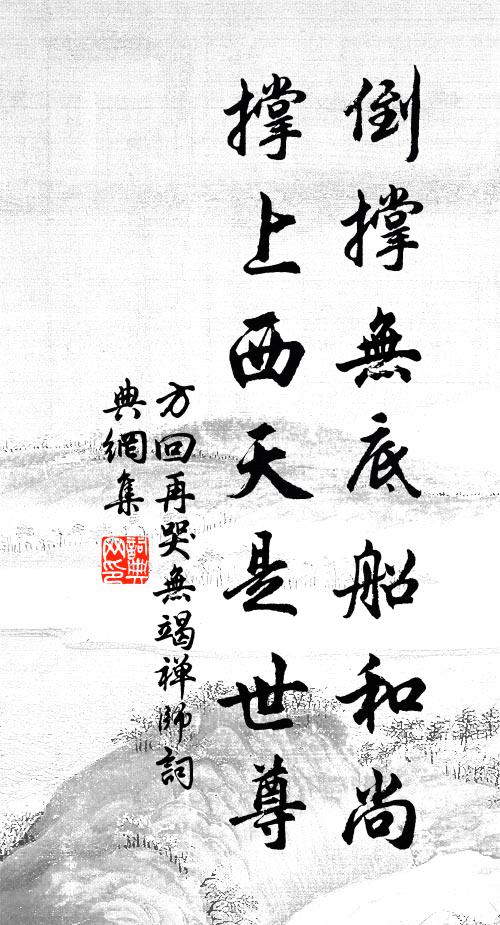 倒撐無底船和尚
撐上西天是世尊
方回再哭無竭禅師詞
典網集
詞典
网印